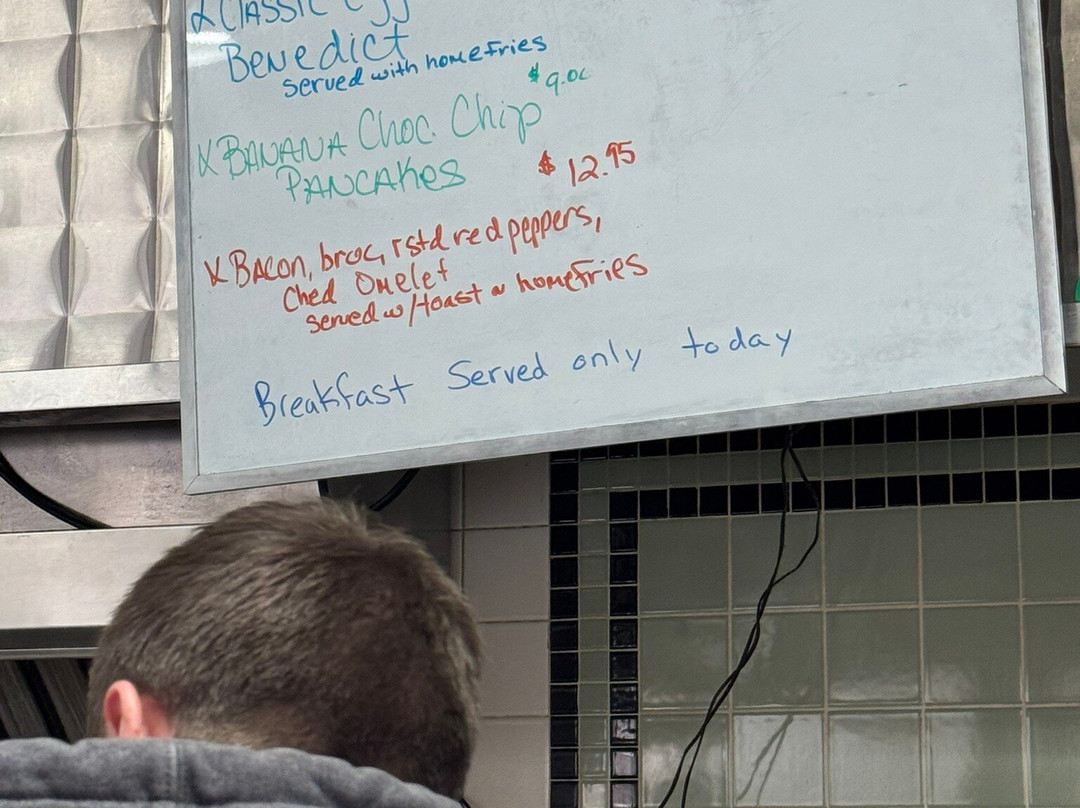 x Classic Egg
Benedict
served with homefries
$9.00
x BANANA Choc. Chip
PANCAKes
$12.95
x BAcon, broc, rstd red peppers,
Ched OMelet
served w/toast n homefries
Breakfast Served only today